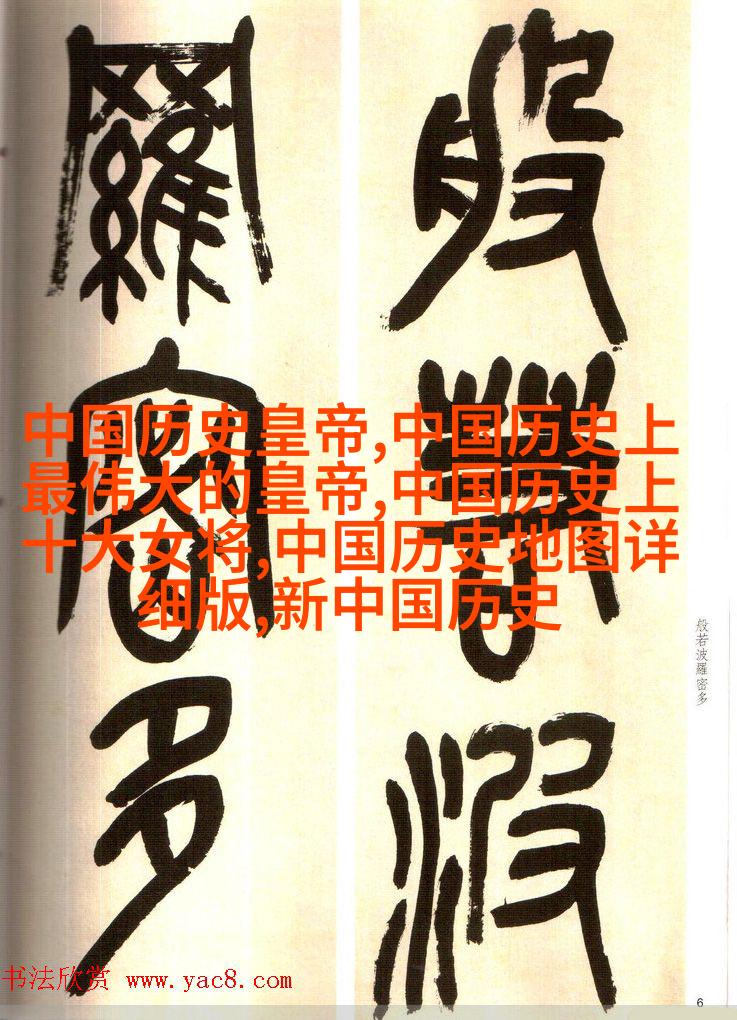 般若波
羅密多
中国历史皇帝,中国历史上
最伟大的皇帝,中国历史上
十大女将,中国历史地图详
细版,新中国历史
般若波羅密多
书法欣赏 www.yac8.com
6